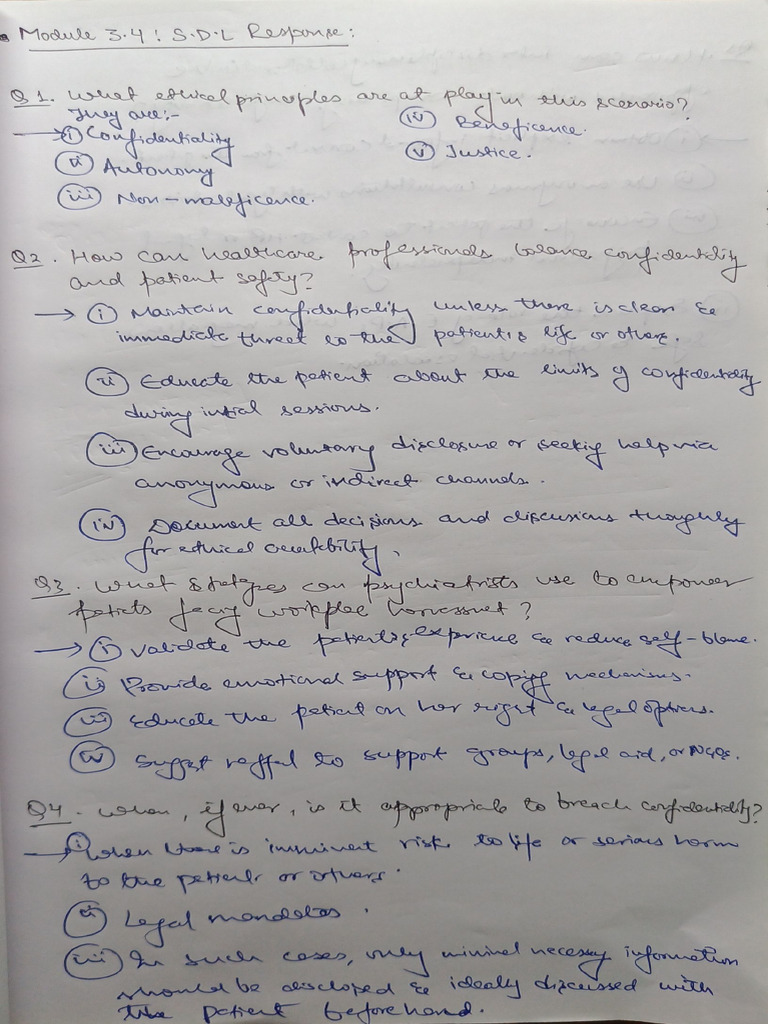 Module 3.4 : S.D.L Response :
Q1. What ethical principles are at play in this scenario?
They are :-
→ (i) Confidentiality
(ii) Autonomy
(iii) Non-maleficence.
(iv) Beneficence.
(v) Justice.
Q2. How can healthcare professionals balance confidentiality
and patient safety?
→ (i) Maintain confidentiality unless there is clear &
immediate threat to the patient's life or others.
(ii) Educate the patient about the limits of confidentiality
during initial sessions.
(iii) Encourage voluntary disclosure or seeking help via
anonymous or indirect channels.
(iv) Document all decisions and discussions thoroughly
for ethical
Q3. What strategies can psychiatrists use to empower
patients facing workplace harassment?
→ (i) Validate the patient's experience & reduce self-blame.
(ii) Provide emotional support & coping mechanisms.
(iii) Educate the patient on her right & legal options.
(iv) Suggest referral to support groups, legal aid, or NGOs.
Q4. When, if ever, is it appropriate to breach confidentiality?
→ (i) When there is imminent risk to life or serious harm
to the patient or others.
(ii) Legal mandates.
(iii) In such cases, only minimal necessary information
should be disclosed & ideally discussed with
the patient beforehand.